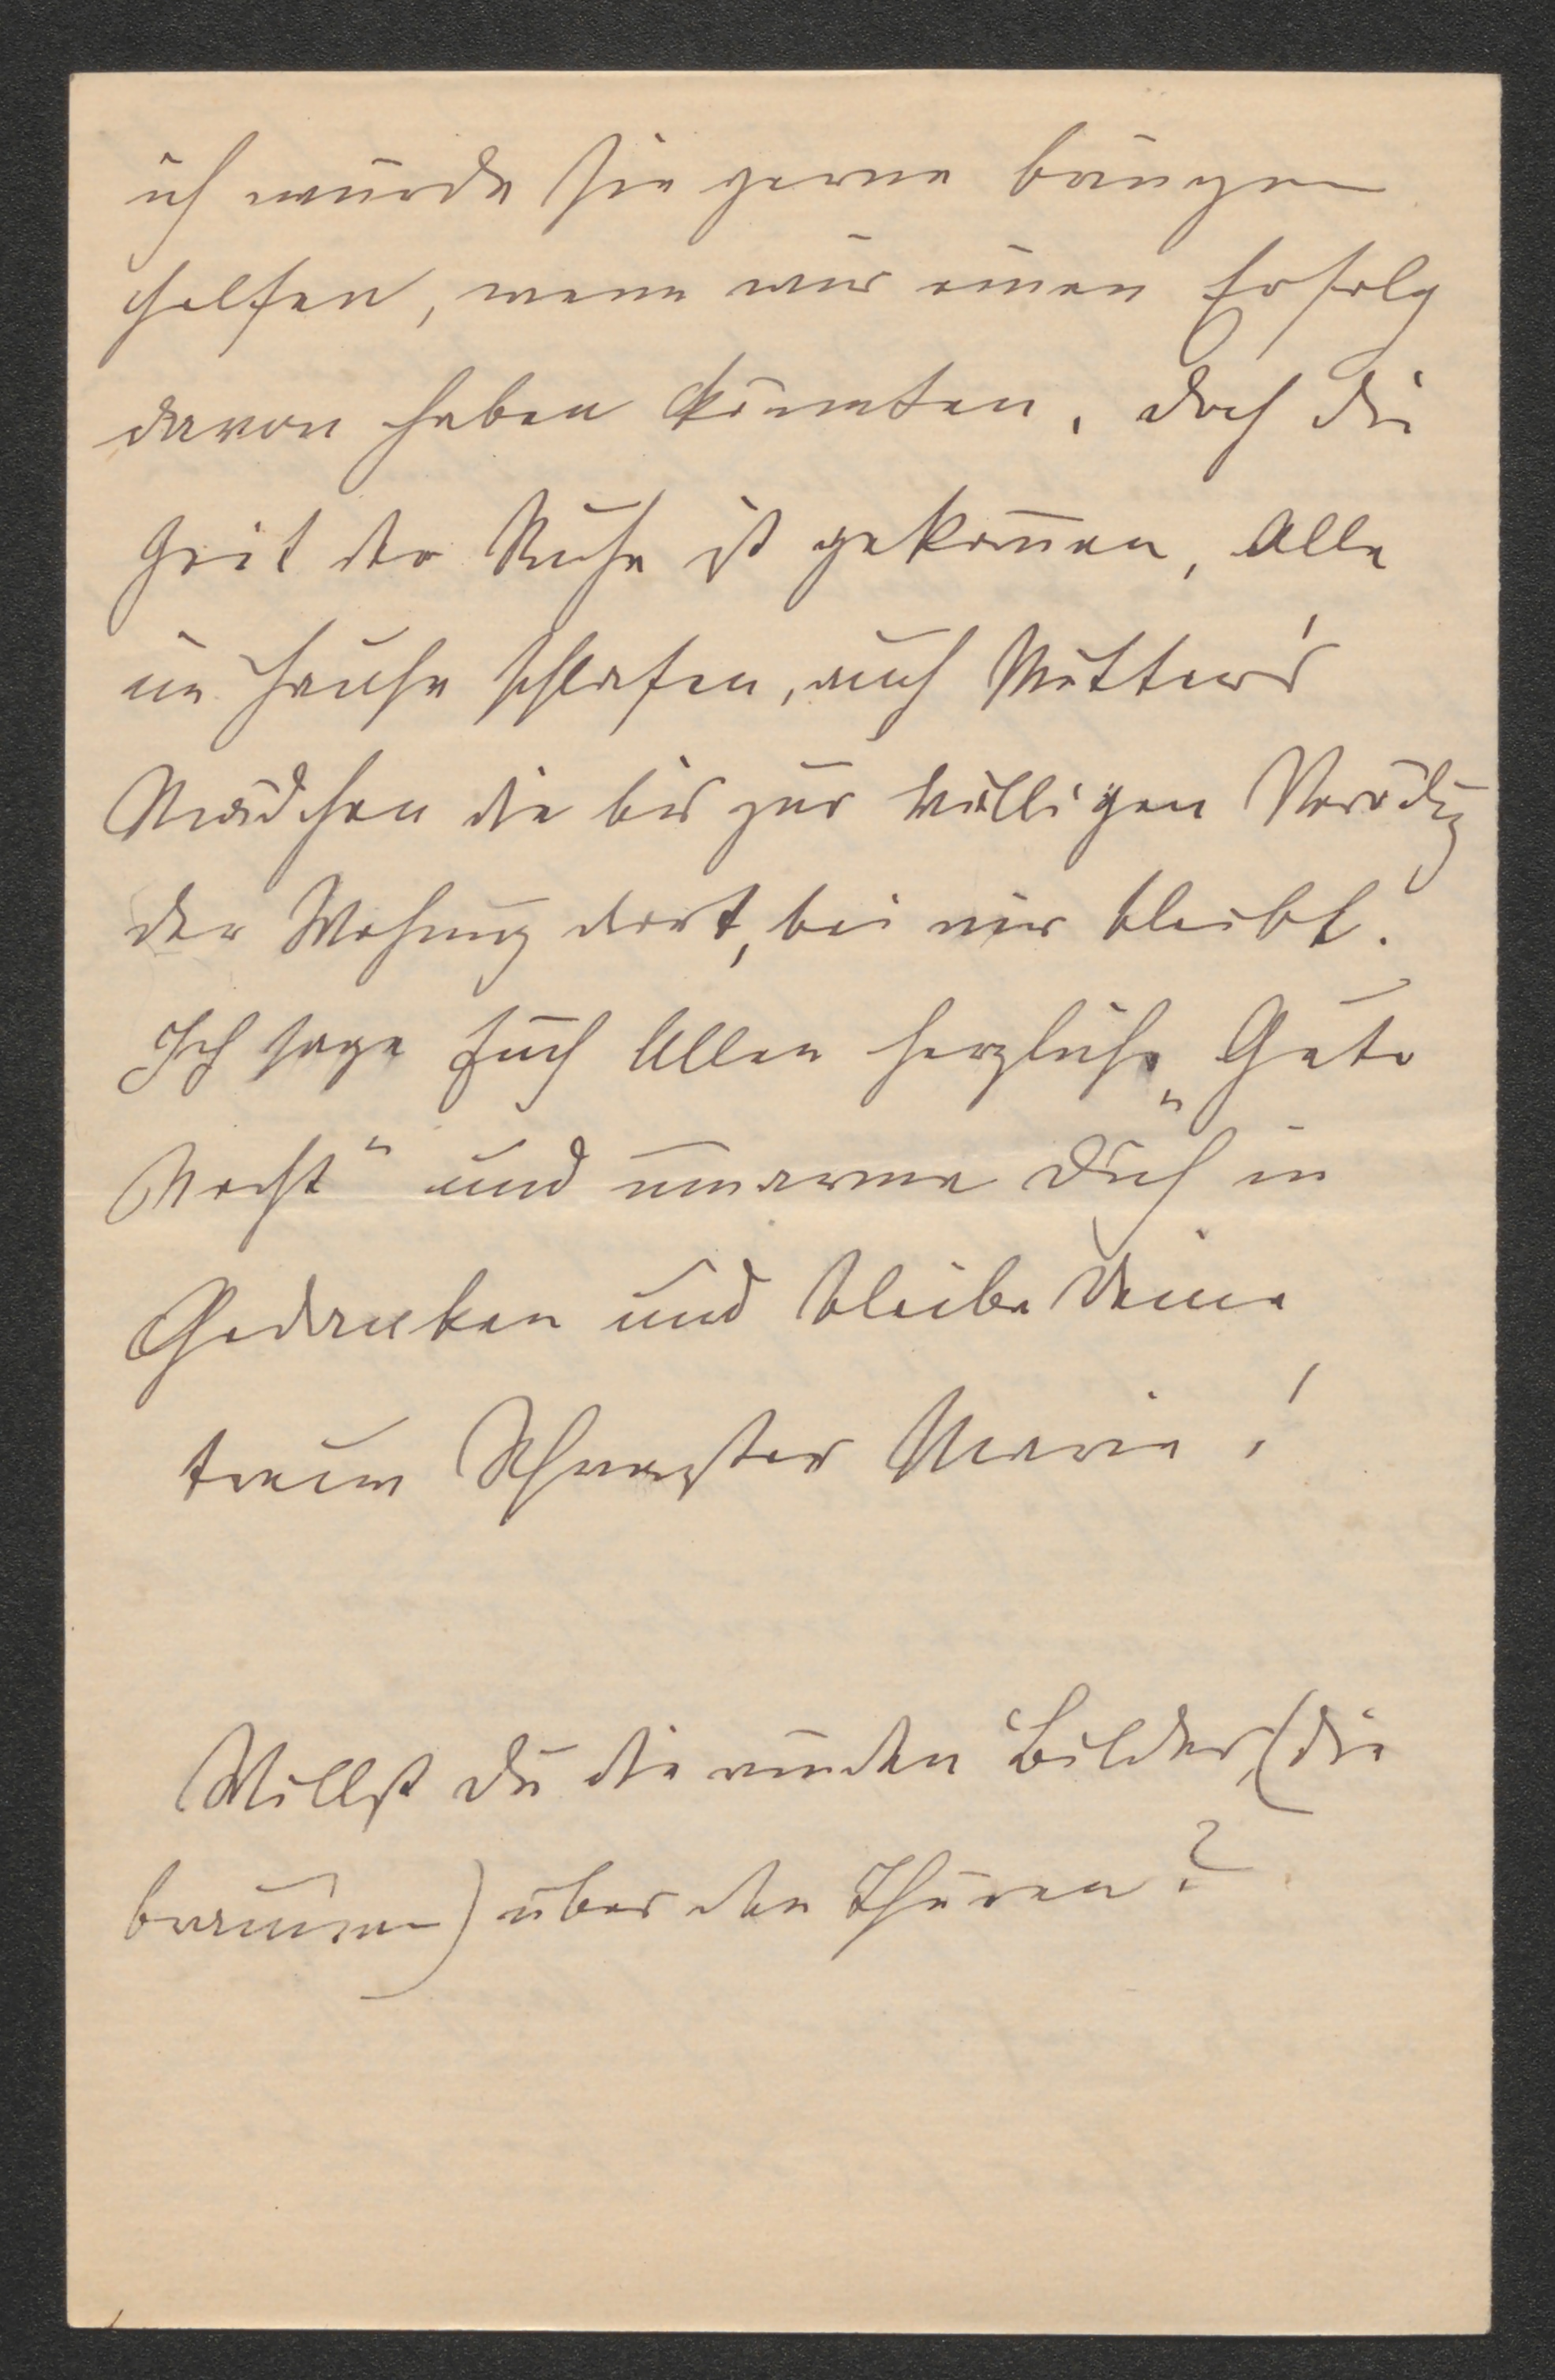 ich würde sie gerne bringen
helfen, wenn wir einen Erfolg
davon haben könnten, doch die
Zeit der Ruhe ist gekommen, Alle
im Hause schlafen, auch Mutter's
Mädchen die bis zur völligen Verödg
der Wohnung dort, bei mir bleibt.
Ich sage Euch Allen herzliche „Gute
Nacht“ und umarme Dich in
Gedanken und bleibe Deine
treue Schwester Marie!
Willst Du die runden Bilder, (die
braunen) über den Thüren?